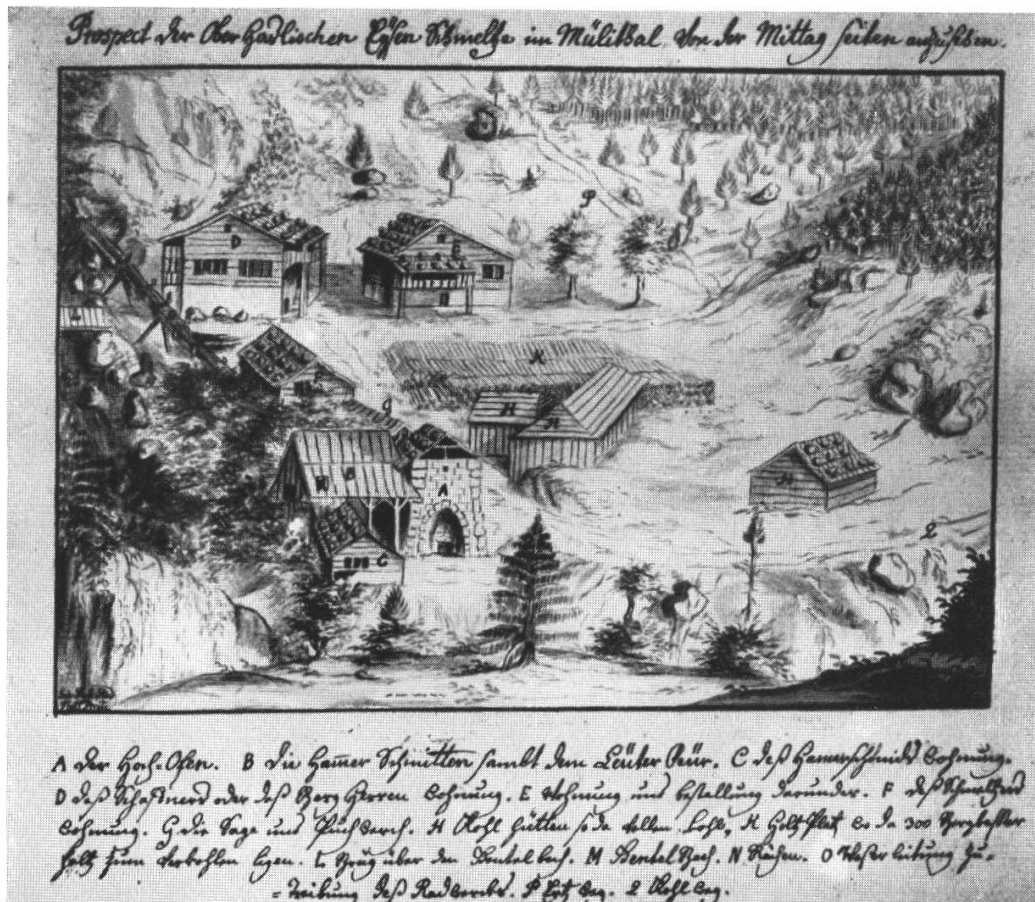 Prospect der Ober Haslischen Eysen Schmeltze im Mülithal von der Mittag seiten anzusehen.
P
D
E
L
K
F
g
H
H
B
A
H
C
Q
A der Hoch-Ofen. B die Hammer Schmitten sambt dem Leüter Feür. C deß Hamerschmids Wohnung.
D deß Schaffners oder deß Berg Herren Wohnung. E Wohnung und bestallung darunder. F deß Schmeltzers
Wohnung. G die Sage und Puchwerch. H Kohl hütten so da vollen Kohl, K Holtz Platz wo da 300 Bergklafter
holtz zum verkohlen ligen. L Brüg über den Bach. M Bach. N O Waßer leitung zu=
=treibung deß Radwercks. P Ertz weg. Q Kohl weg.